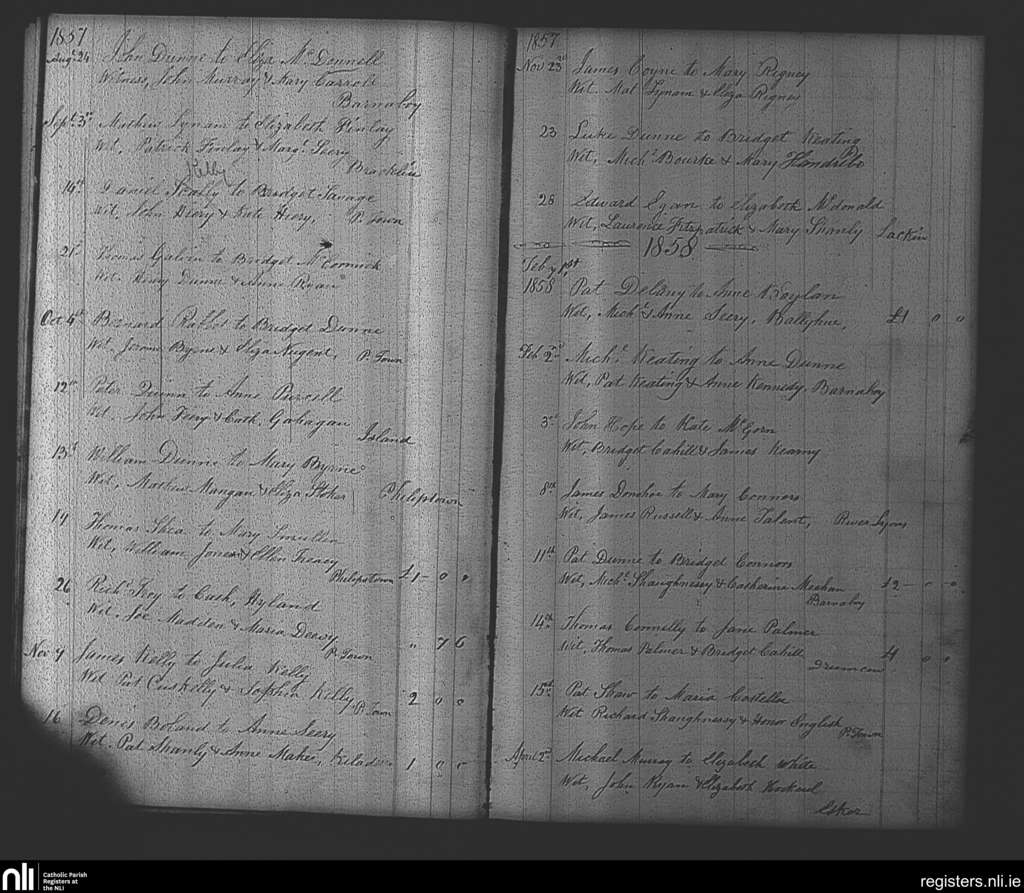 1857
Augt 24 John Dunne to Eliza McDonnell
Witness, John Murray & Mary Carroll
Barnaboy
Sept 3rd Mathew Lynam to Elizabeth Finlay
Wit, Patrick Finlay & Margt Seery
Bracklin
Kelly
14th Daniel to Bridget Savage
Wit, John Heery & Kate Heery, P. Town
21st Thomas Galvin to Bridget McCormick
Wit. Henry Dunne & Anne Ryan
Oct 5th Bernard Rabbot to Bridget Dunne
Wit. Jerome Byrne & Eliza Nugent, P. Town
12th Peter Quinn to Anne Purcell
Wit. John Feery & Cath. Gahagan
Island
13th William Dunne to Mary Byrne
Wit, Mathew Mangan & Eliza Stoker Philipstown
14 Thomas Shea to Mary Smullen
Wit, William Jones & Ellen Treacy
Philipstown £1 - 0 0
26 Richd Troy to Cath, Hyland
Wit. Jos. Madden & Maria Deasy
P. Town " 7 6
Nov 4 James Kelly to Julia Kelly
Wit Pat Cuskelly & Sophia Kelly P. Town 2 0 0
16 Denis Boland to Anne Seery
Wit. Pat Shanly & Anne Maher, 1 0 0
1857
Nov 23rd James Coyne to Mary Rigney
Wit. Mat Lynam & Eliza Rigney
23 Luke Dunne to Bridget Keating
Wit, Michl Bourke & Mary
28 Edward Egan to Elizabeth McDonald
Wit, Laurence Fitzpatrick & Mary Shanly Lackin
1858
Feby 1st
1858 Pat Delany to Anne Boylan
Wit, Michl & Anne Seery, £1 0 0
Feb 2nd Michl Keating to Anne Dunne
Wit, Pat Keating & Anne Kennedy, Barnaboy
3rd John Hope to Kate McGorn
Wit, Bridget Cahill & James Kearny
8th James Donohoe to Mary Connors
Wit, James Russell & Anne Talent, River Lyons
11th Pat Dunne to Bridget Connors
Wit, Michl Shaughnessy & Catherine Meehan £2 - 0 - 0
Barnaboy
14th Thomas Connelly to Jane Palmer
Wit, Thomas Palmer & Bridget Cahill £1 0 0
15th Pat Shaw to Maria Costelloe
Wit Richard Shaughnessy & Honor English
P. Town
April 2nd Michael Murray to Elizabeth White
Wit, John Ryan & Elizabeth
Esker
nli
Catholic Parish
Registers at
the NLI
registers.nli.ie